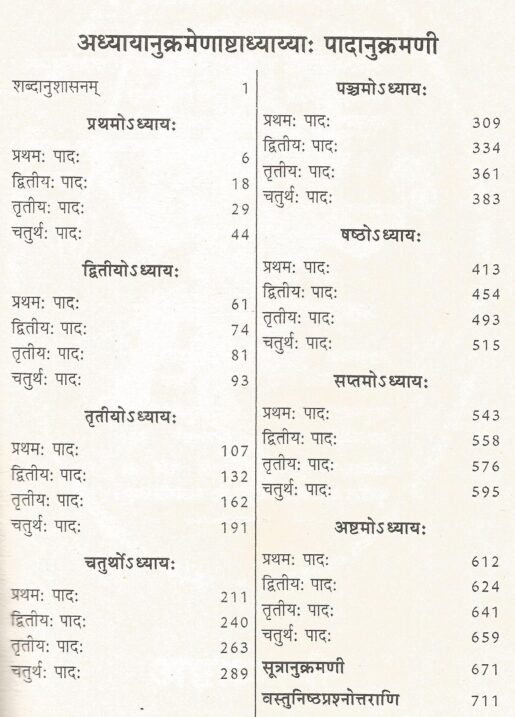 अध्यायानुक्रमेणाष्टाध्याय्याः पादानुक्रमणी
शब्दानुशासनम् 1
प्रथमोऽध्यायः
प्रथमः पादः 6
द्वितीयः पादः 18
तृतीयः पादः 29
चतुर्थः पादः 44
द्वितीयोऽध्यायः
प्रथमः पादः 61
द्वितीयः पादः 74
तृतीयः पादः 81
चतुर्थः पादः 93
तृतीयोऽध्यायः
प्रथमः पादः 107
द्वितीयः पादः 132
तृतीयः पादः 162
चतुर्थः पादः 191
चतुर्थोऽध्यायः
प्रथमः पादः 211
द्वितीयः पादः 240
तृतीयः पादः 263
चतुर्थः पादः 289
पञ्चमोऽध्यायः
प्रथमः पादः 309
द्वितीयः पादः 334
तृतीयः पादः 361
चतुर्थः पादः 383
षष्ठोऽध्यायः
प्रथमः पादः 413
द्वितीयः पादः 454
तृतीयः पादः 493
चतुर्थः पादः 515
सप्तमोऽध्यायः
प्रथमः पादः 543
द्वितीयः पादः 558
तृतीयः पादः 576
चतुर्थः पादः 595
अष्टमोऽध्यायः
प्रथमः पादः 612
द्वितीयः पादः 624
तृतीयः पादः 641
चतुर्थः पादः 659
सूत्रानुक्रमणी 671
वस्तुनिष्ठप्रश्नोत्तराणि 711